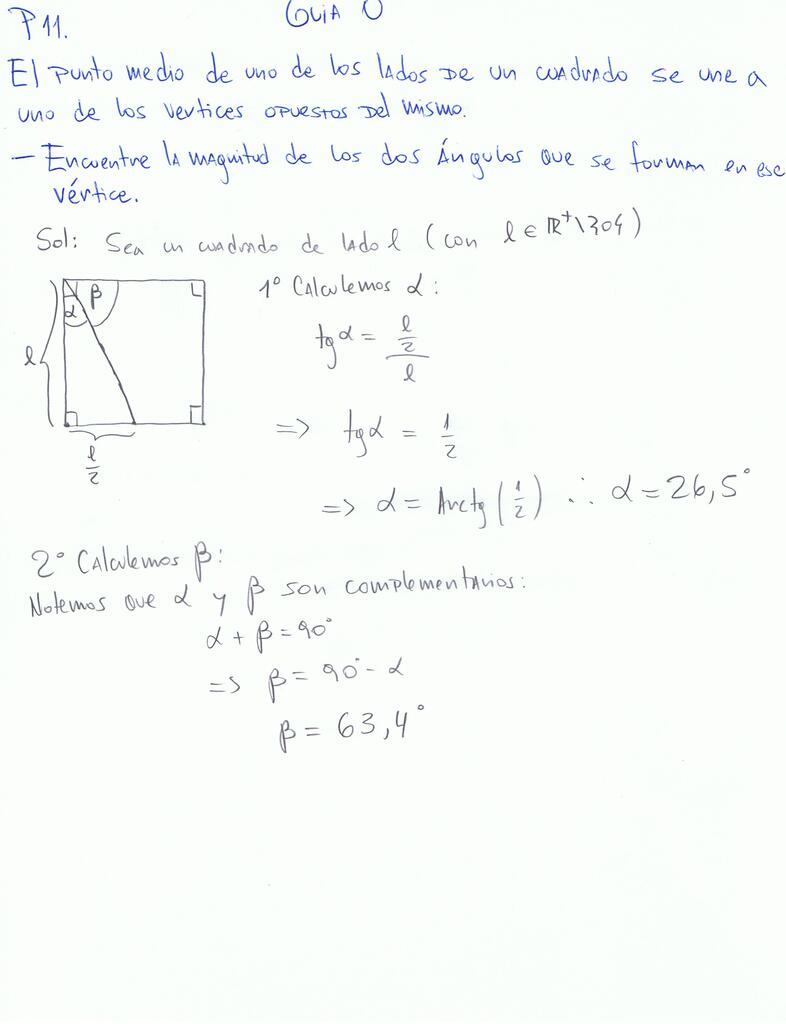 GUIA 0
P 11.
El punto medio de uno de los lados de un cuadrado se une a
uno de los vertices opuestos del mismo.
- Encuentre la magnitud de los dos Ángulos que se forman en ese
vértice.
Sol: Sea un cuadrado de lado l (con l ∈ ℝ⁺\{0})
1° Calculemos α:
β
α
l
l/2
tg α = (l/2)/l
=> tg α = 1/2
=> α = Arctg (1/2) ∴ α = 26,5°
2° Calculemos β:
Notemos que α y β son complementarios:
α + β = 90°
=> β = 90° - α
β = 63,4°